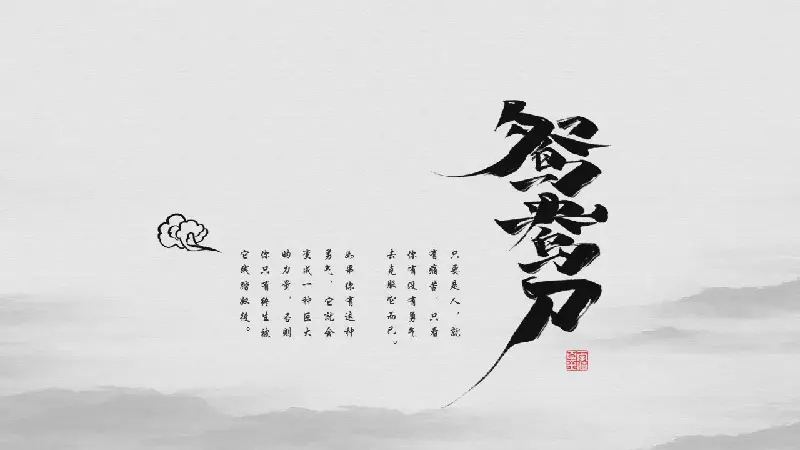 鸳鸯刀
只要是人，就
有痛苦，只看
你有没有勇气
去克服它而已。
如果你有这种
勇气，它就会
变成一种巨大
的力量，否则
你只有终生被
它践踏奴役。